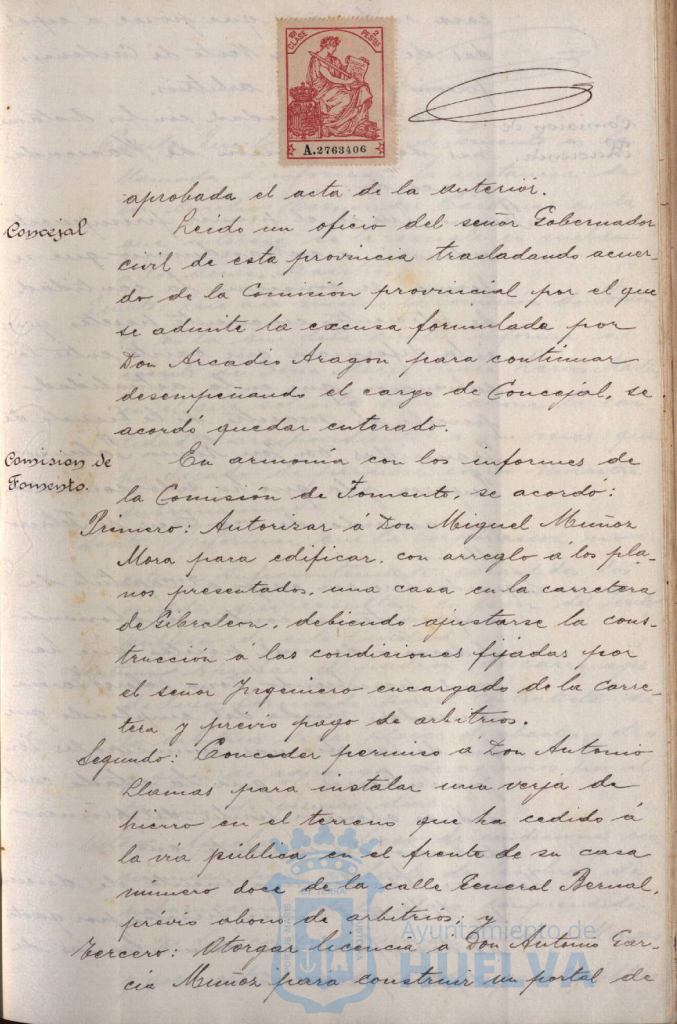 CLASE
PESTAS
A.2763406
aprobada el acta de la anterior.
Concejal
Leido un oficio del señor Gobernador
civil de esta provincia trasladando acuer-
do de la Comisión provincial por el que
se admite la excusa formulada por
Don Arcadio Aragon para continuar
desempeñando el cargo de Concejal, se
acordó quedar enterado.
Comision de
Fomento.
En armonía con los informes de
la Comisión de Fomento, se acordó:
Primero: Autorizar á Don Miguel Muñoz
Mora para edificar, con arreglo á los pla-
nos presentados, una casa en la carretera
de Gibraleon, debiendo ajustarse la cons-
trucción á las condiciones fijadas por
el señor Ingeniero encargado de la carre-
tera y prévio pago de arbitrios.
Segundo: Conceder permiso á Don Antonio
Llamas para instalar una verja de
hierro en el terreno que ha cedido á
la via pública en el frente de su casa
número doce de la calle General Bernal,
prévio abono de arbitrios; y
Tercero: Otorgar licencia a Don Antonio Gar-
cia Muñoz para construir un portal de
Ayuntamiento de
HUELVA